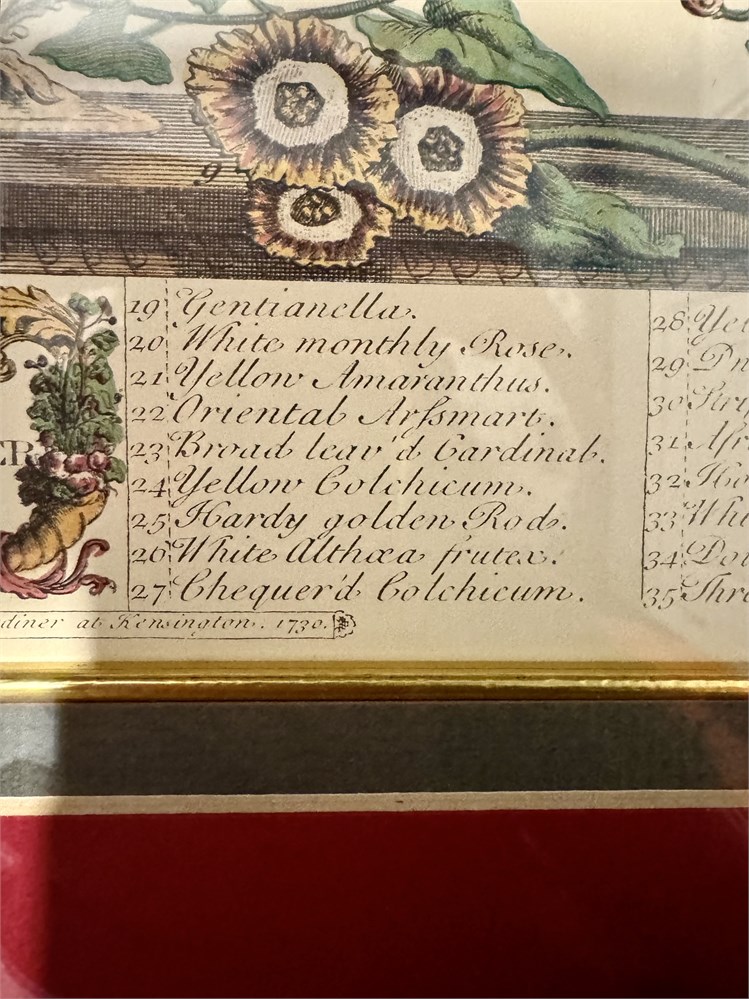 9
19 Gentianella.
20 White monthly Rose.
21 Yellow Amaranthus.
22 Oriental Arſsmart.
23 Broad leav'd Cardinal.
24 Yellow Colchicum.
25 Hardy golden Rod.
26 White Althæa frutex.
27 Chequer'd Colchicum.
28
29
30
31
32
33
34
35
at Kensington. 1730.